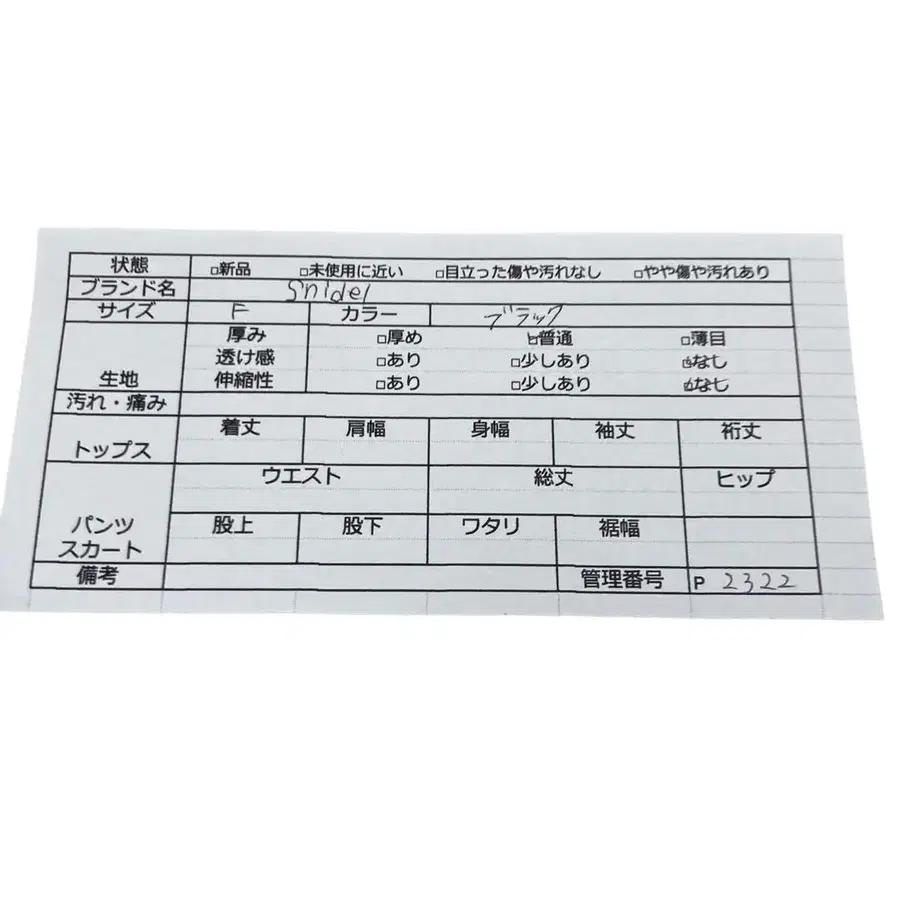 状態 □新品 □未使用に近い □目立った傷や汚れなし □やや傷や汚れあり
ブランド名 Snidel
サイズ F カラー ブラック
厚み □厚め ☑普通 □薄目
透け感 □あり □少しあり ☑なし
生地 伸縮性 □あり □少しあり ☑なし
汚れ・痛み
着丈 肩幅 身幅 袖丈 裄丈
トップス
ウエスト 総丈 ヒップ
股上 股下 ワタリ 裾幅
パンツ
スカート
備考 管理番号 P 2322